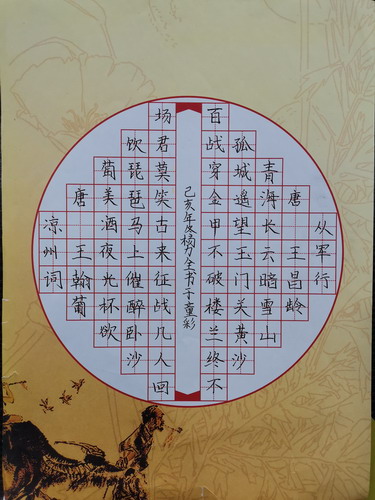 从军行
唐 王昌龄
青海长云暗雪山
孤城遥望玉门关黄沙
百战穿金甲不破楼兰终不
凉州词
唐 王翰葡
萄美酒夜光杯欲
饮琵琶马上催醉卧沙
场君莫笑古来征战几人回
己亥年冬杨力全书于童彩